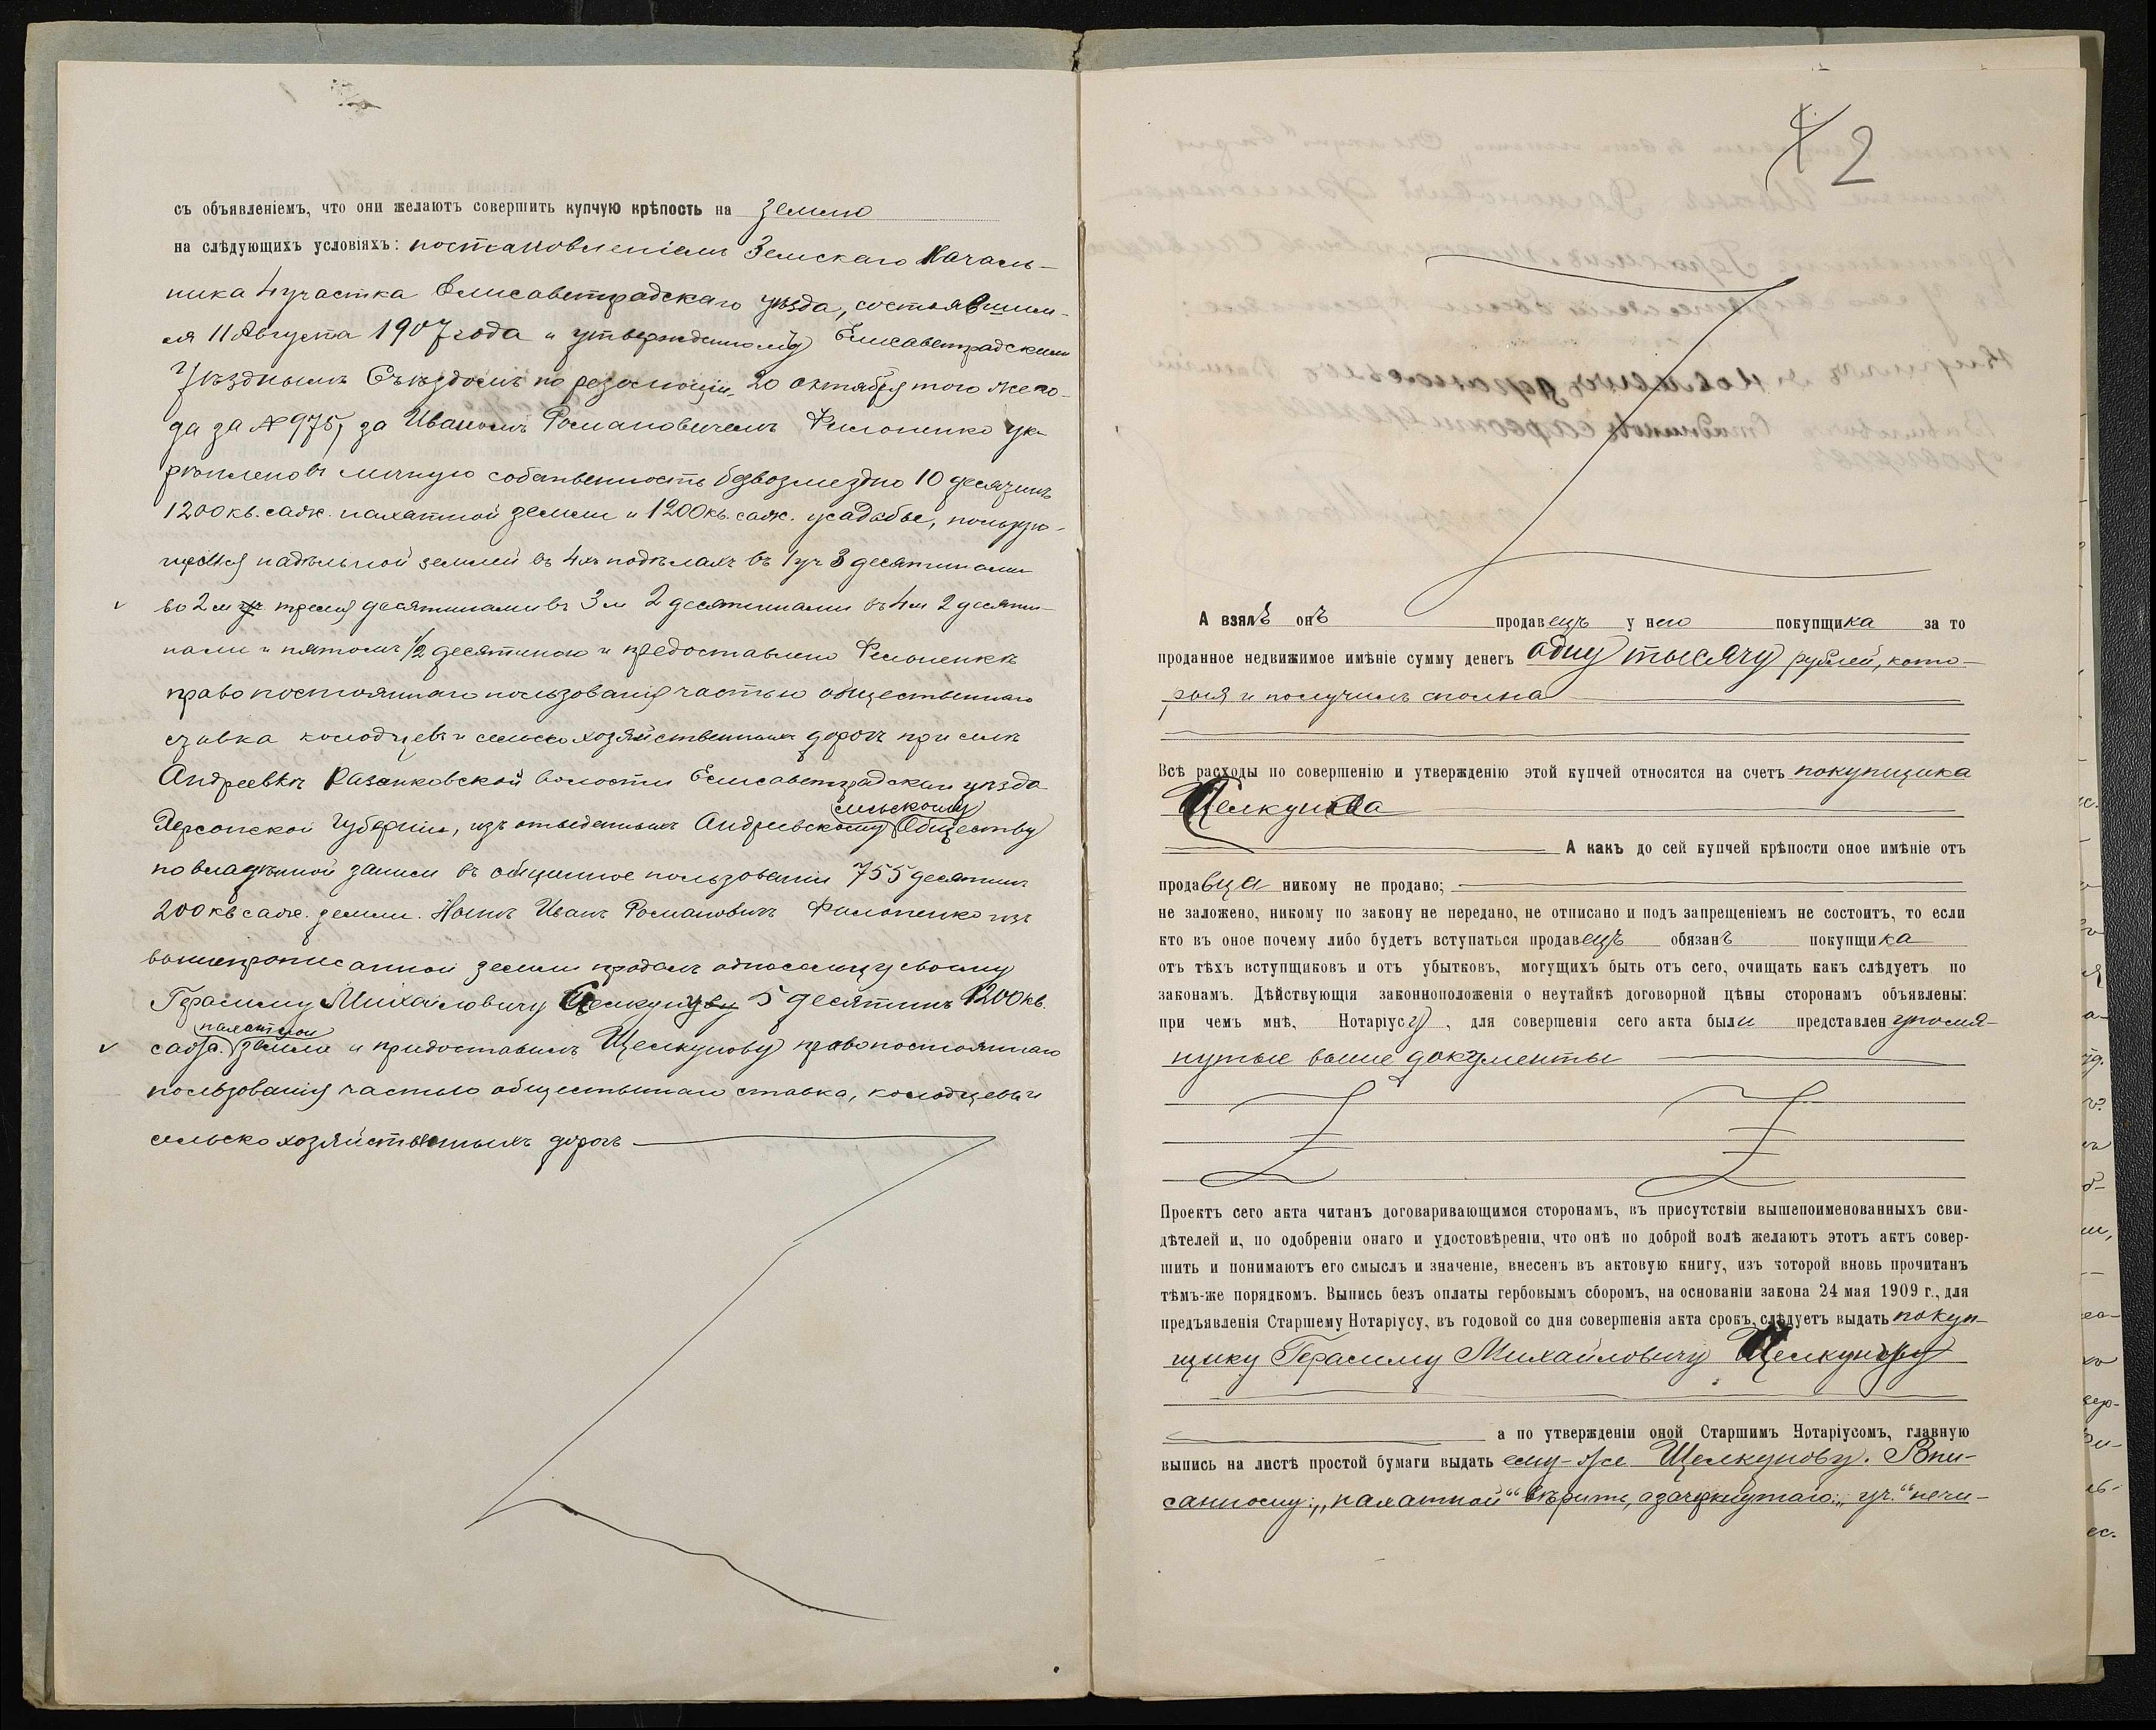 съ объявленіемъ, что они желаютъ совершить купчую крѣпость на землю
на слѣдующихъ условіяхъ: постановленіемъ Земскаго Началь-
ника 4 участка Елисаветградскаго уѣзда, состоявшим-
ся 11 Августа 1907 года и утвержденному Елисаветградскимъ
Уѣзднымъ Съѣздомъ по резолюціи 20 октября того же го-
да за № 975, за Иваномъ Романовичемъ Филоненко ук-
рѣплено въ личную собственность безвозмездно 10 десятинъ
1200 кв. саж. пахатной земли и 1200 кв. саж. усадьбы, пользую-
щейся надѣльной землей въ 4хъ подѣлахъ въ 1 уч 3 десятинами
во 2 м уч тремя десятинами въ 3 м 2 десятинами въ 4 м 2 десяти-
нами и пятомъ 1/2 десятиною и предоставлено Филоненкѣ
право постояннаго пользованія частью общественнаго
ставка колодцевъ и сельско хозяйственныхъ дорогъ при селѣ
Андреевкѣ Казанковской волости Елисаветградскаго уѣзда
сельскому
Херсонской губерніи, изъ отведенныхъ Андреевскому Обществу
по владѣнной записи въ общинное пользованіи 755 десятинъ
200 кв саж. земли. Нынѣ Иванъ Романовичъ Филоненко изъ
вышепрописанной земли продалъ односельцу своему
Герасиму Михайловичу Щелкунову 5 десятинъ 1200 кв.
пахатной
саж. земли и предоставилъ Щелкунову право постояннаго
пользованія частью общественнаго ставка, колодцевъ и
сельско хозяйственныхъ дорогъ
1/2
А взялъ онъ продавецъ у него покупщика за то
проданное недвижимое имѣніе сумму денегъ одну тысячу рублей, кото-
рыя и получилъ сполна
Всѣ расходы по совершенію и утвержденію этой купчей относятся на счетъ покупщика
Щелкунова
А какъ до сей купчей крѣпости оное имѣніе отъ
продавца никому не продано;
не заложено, никому по закону не передано, не отписано и подъ запрещеніемъ не состоитъ, то если
кто въ оное почему либо будетъ вступаться продавецъ обязанъ покупщика
отъ тѣхъ вступщиковъ и отъ убытковъ, могущихъ быть отъ сего, очищать какъ слѣдуетъ по
законамъ. Дѣйствующія законноположенія о неутайкѣ договорной цѣны сторонамъ объявлены:
при чемъ мнѣ, Нотаріусу, для совершенія сего акта были представлен упомя-
нутые выше документы
Проектъ сего акта читанъ договаривающимся сторонамъ, въ присутствіи вышепоименованныхъ сви-
дѣтелей и, по одобреніи онаго и удостовѣреніи, что онѣ по доброй волѣ желаютъ этотъ актъ совер-
шить и понимаютъ его смыслъ и значеніе, внесенъ въ актовую книгу, изъ которой вновь прочитанъ
тѣмъ-же порядкомъ. Выпись безъ оплаты гербовымъ сборомъ, на основаніи закона 24 мая 1909 г., для
предъявленія Старшему Нотаріусу, въ годовой со дня совершенія акта срокъ, слѣдуетъ выдать покуп-
щику Герасиму Михайловичу Щелкунову
а по утвержденіи оной Старшимъ Нотаріусомъ, главную
выпись на листѣ простой бумаги выдать ему-же Щелкунову. Впи-
санному: „пахатной“ вѣрить, а зачеркнутаго: „уч.“ нечи-